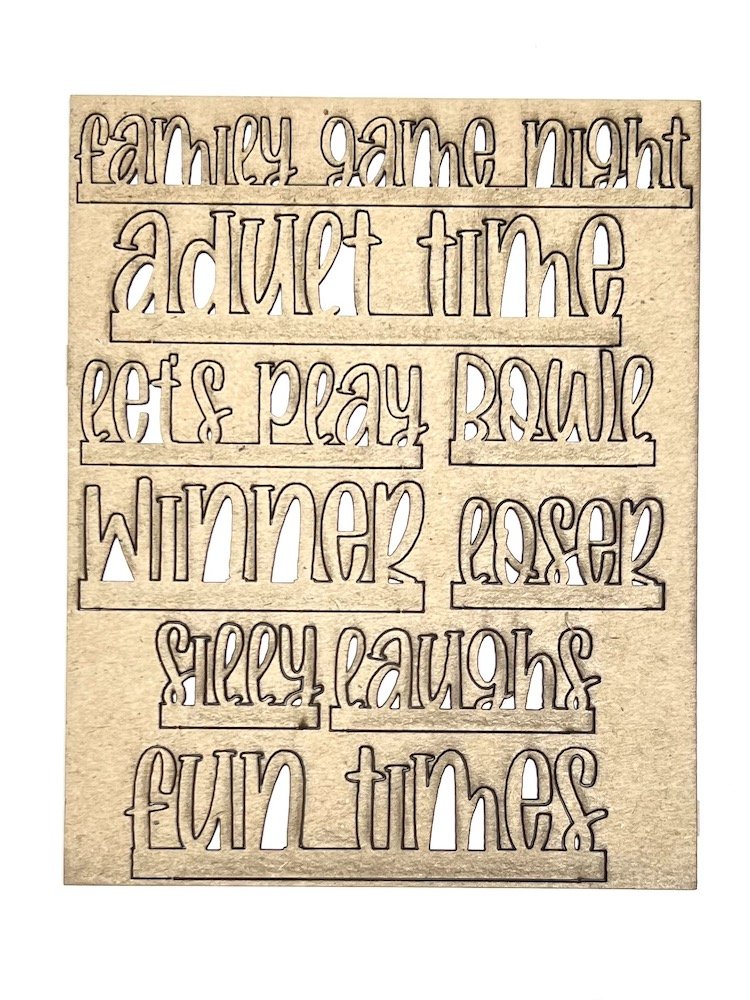 family game night
adult time
let's play BOWL
WINNER loser
silly laughs
fun times